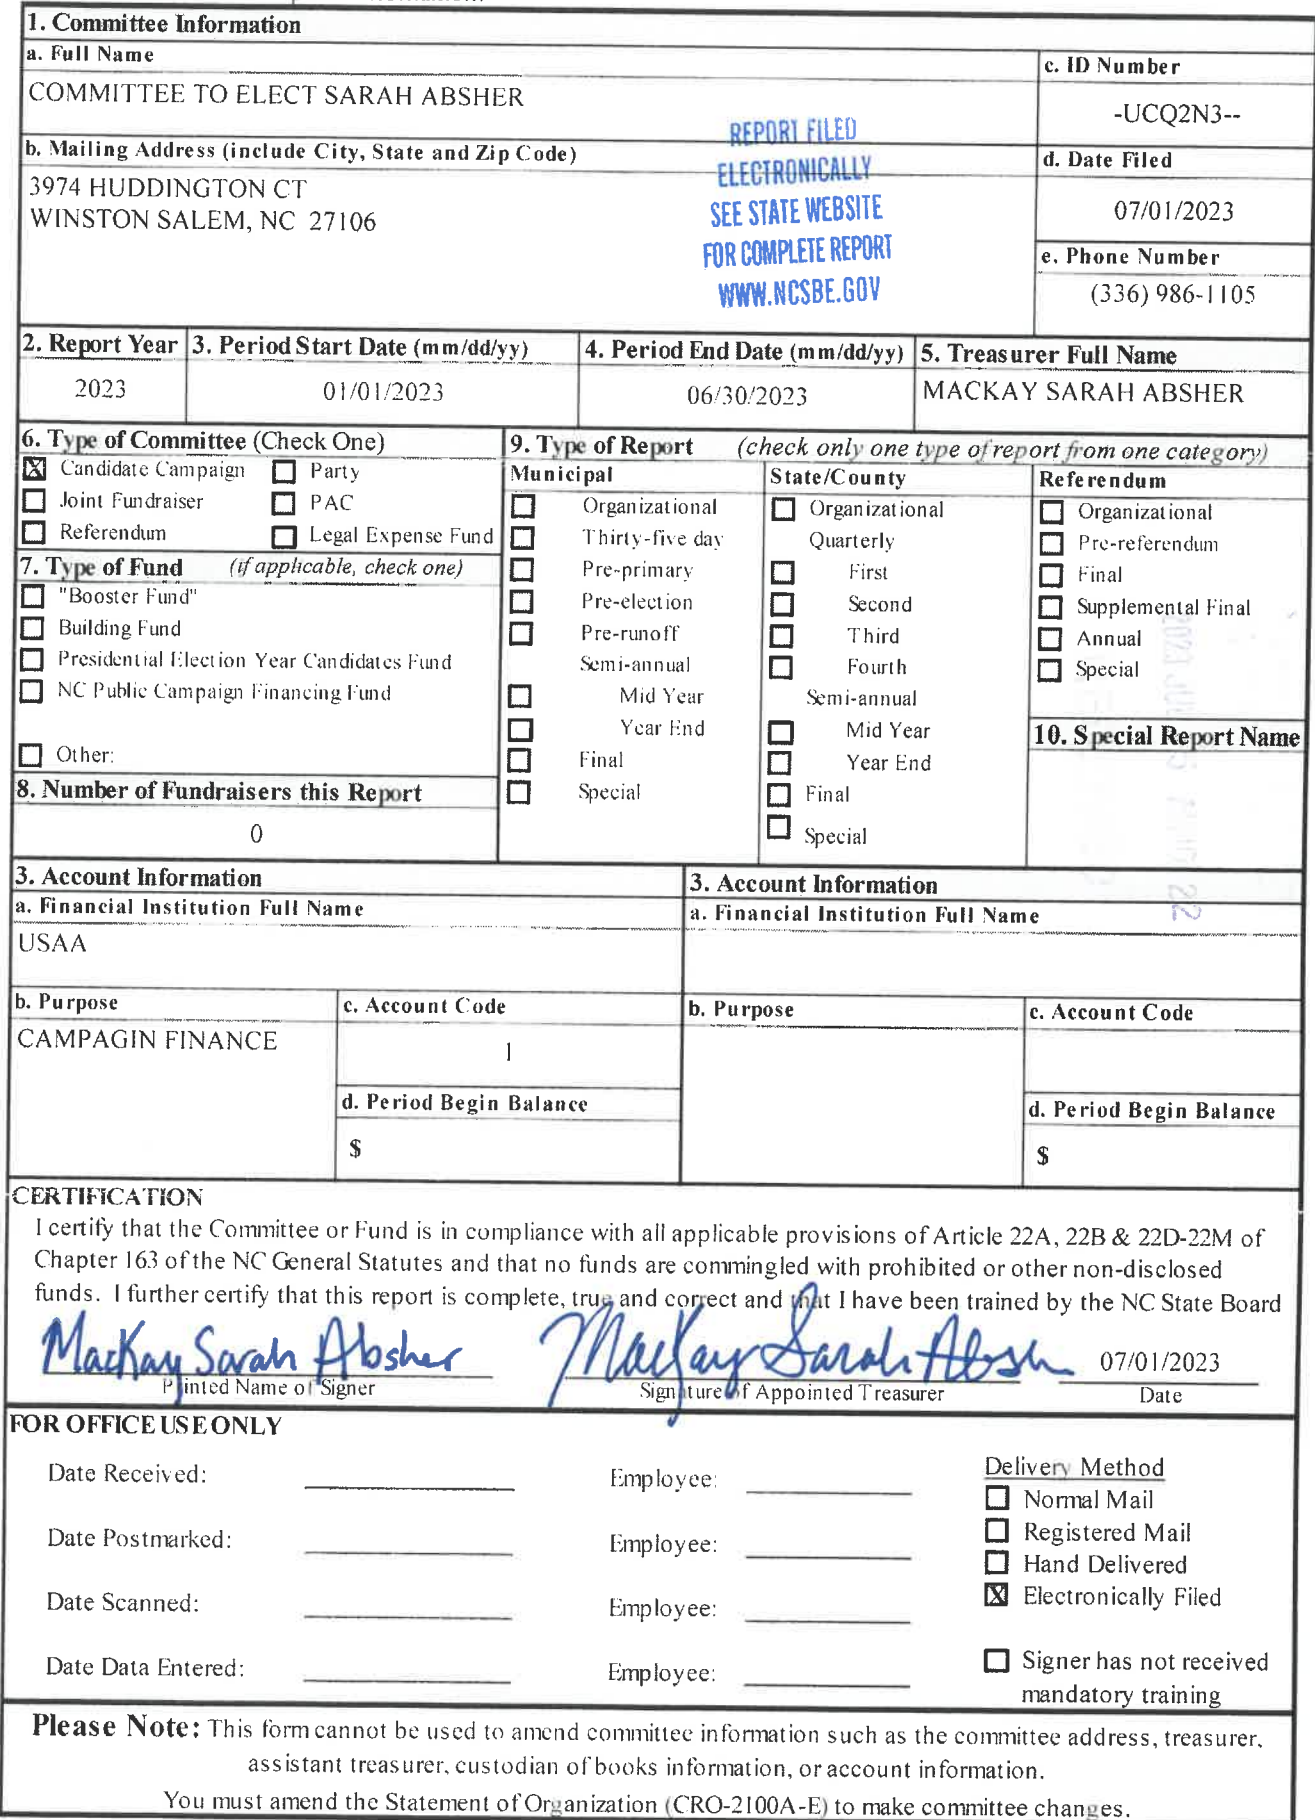 1. Committee Information
a. Full Name
c. ID Number
COMMITTEE TO ELECT SARAH ABSHER
-UCQ2N3--
REPORT FILED
ELECTRONICALLY
SEE STATE WEBSITE
FOR COMPLETE REPORT
WWW.NCSBE.GOV
b. Mailing Address (include City, State and Zip Code)
d. Date Filed
3974 HUDDINGTON CT
WINSTON SALEM, NC 27106
07/01/2023
e. Phone Number
(336) 986-1105
2. Report Year
3. Period Start Date (mm/dd/yy)
4. Period End Date (mm/dd/yy)
5. Treasurer Full Name
2023
01/01/2023
06/30/2023
MACKAY SARAH ABSHER
6. Type of Committee (Check One)
X Candidate Campaign
Party
Joint Fundraiser
PAC
Referendum
Legal Expense Fund
7. Type of Fund (if applicable, check one)
"Booster Fund"
Building Fund
Presidential Election Year Candidates Fund
NC Public Campaign Financing Fund
Other:
8. Number of Fundraisers this Report
0
9. Type of Report (check only one type of report from one category)
Municipal
Organizational
Thirty-five day
Pre-primary
Pre-election
Pre-runoff
Semi-annual
Mid Year
Year End
Final
Special
State/County
Organizational
Quarterly
First
Second
Third
Fourth
Semi-annual
Mid Year
Year End
Final
Special
Referendum
Organizational
Pre-referendum
Final
Supplemental Final
Annual
Special
10. Special Report Name
3. Account Information
a. Financial Institution Full Name
USAA
b. Purpose
c. Account Code
CAMPAGIN FINANCE
1
d. Period Begin Balance
$
3. Account Information
a. Financial Institution Full Name
b. Purpose
c. Account Code
d. Period Begin Balance
$
CERTIFICATION
I certify that the Committee or Fund is in compliance with all applicable provisions of Article 22A, 22B & 22D-22M of
Chapter 163 of the NC General Statutes and that no funds are commingled with prohibited or other non-disclosed
funds. I further certify that this report is complete, true and correct and that I have been trained by the NC State Board
MacKay Sarah Absher
MacKay Sarah Absh
07/01/2023
Printed Name of Signer
Signature of Appointed Treasurer
Date
FOR OFFICE USE ONLY
Date Received:
Employee:
Date Postmarked:
Employee:
Date Scanned:
Employee:
Date Data Entered:
Employee:
Delivery Method
Normal Mail
Registered Mail
Hand Delivered
X Electronically Filed
Signer has not received
mandatory training
Please Note: This form cannot be used to amend committee information such as the committee address, treasurer,
assistant treasurer, custodian of books information, or account information.
You must amend the Statement of Organization (CRO-2100A-E) to make committee changes.